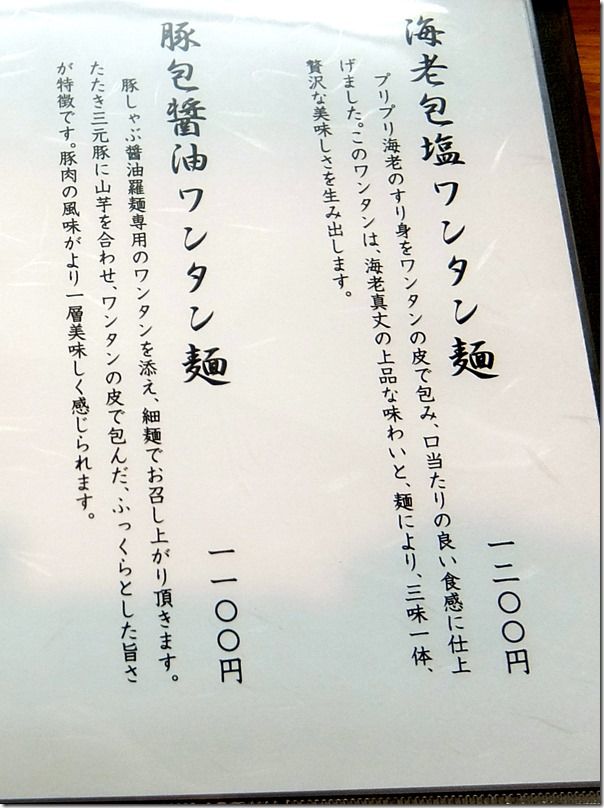 海老包塩ワンタン麺
一二〇〇円
プリプリ海老のすり身をワンタンの皮で包み、口当たりの良い食感に仕上
げました。このワンタンは、海老真丈の上品な味わいと、麺により、三味一体、
贅沢な美味しさを生み出します。
豚包醤油ワンタン麺
一一〇〇円
豚しゃぶ醤油羅麺専用のワンタンを添え、細麺でお召し上がり頂きます。
たたき三元豚に山芋を合わせ、ワンタンの皮で包んだ、ふっくらとした旨さ
が特徴です。豚肉の風味がより一層美味しく感じられます。